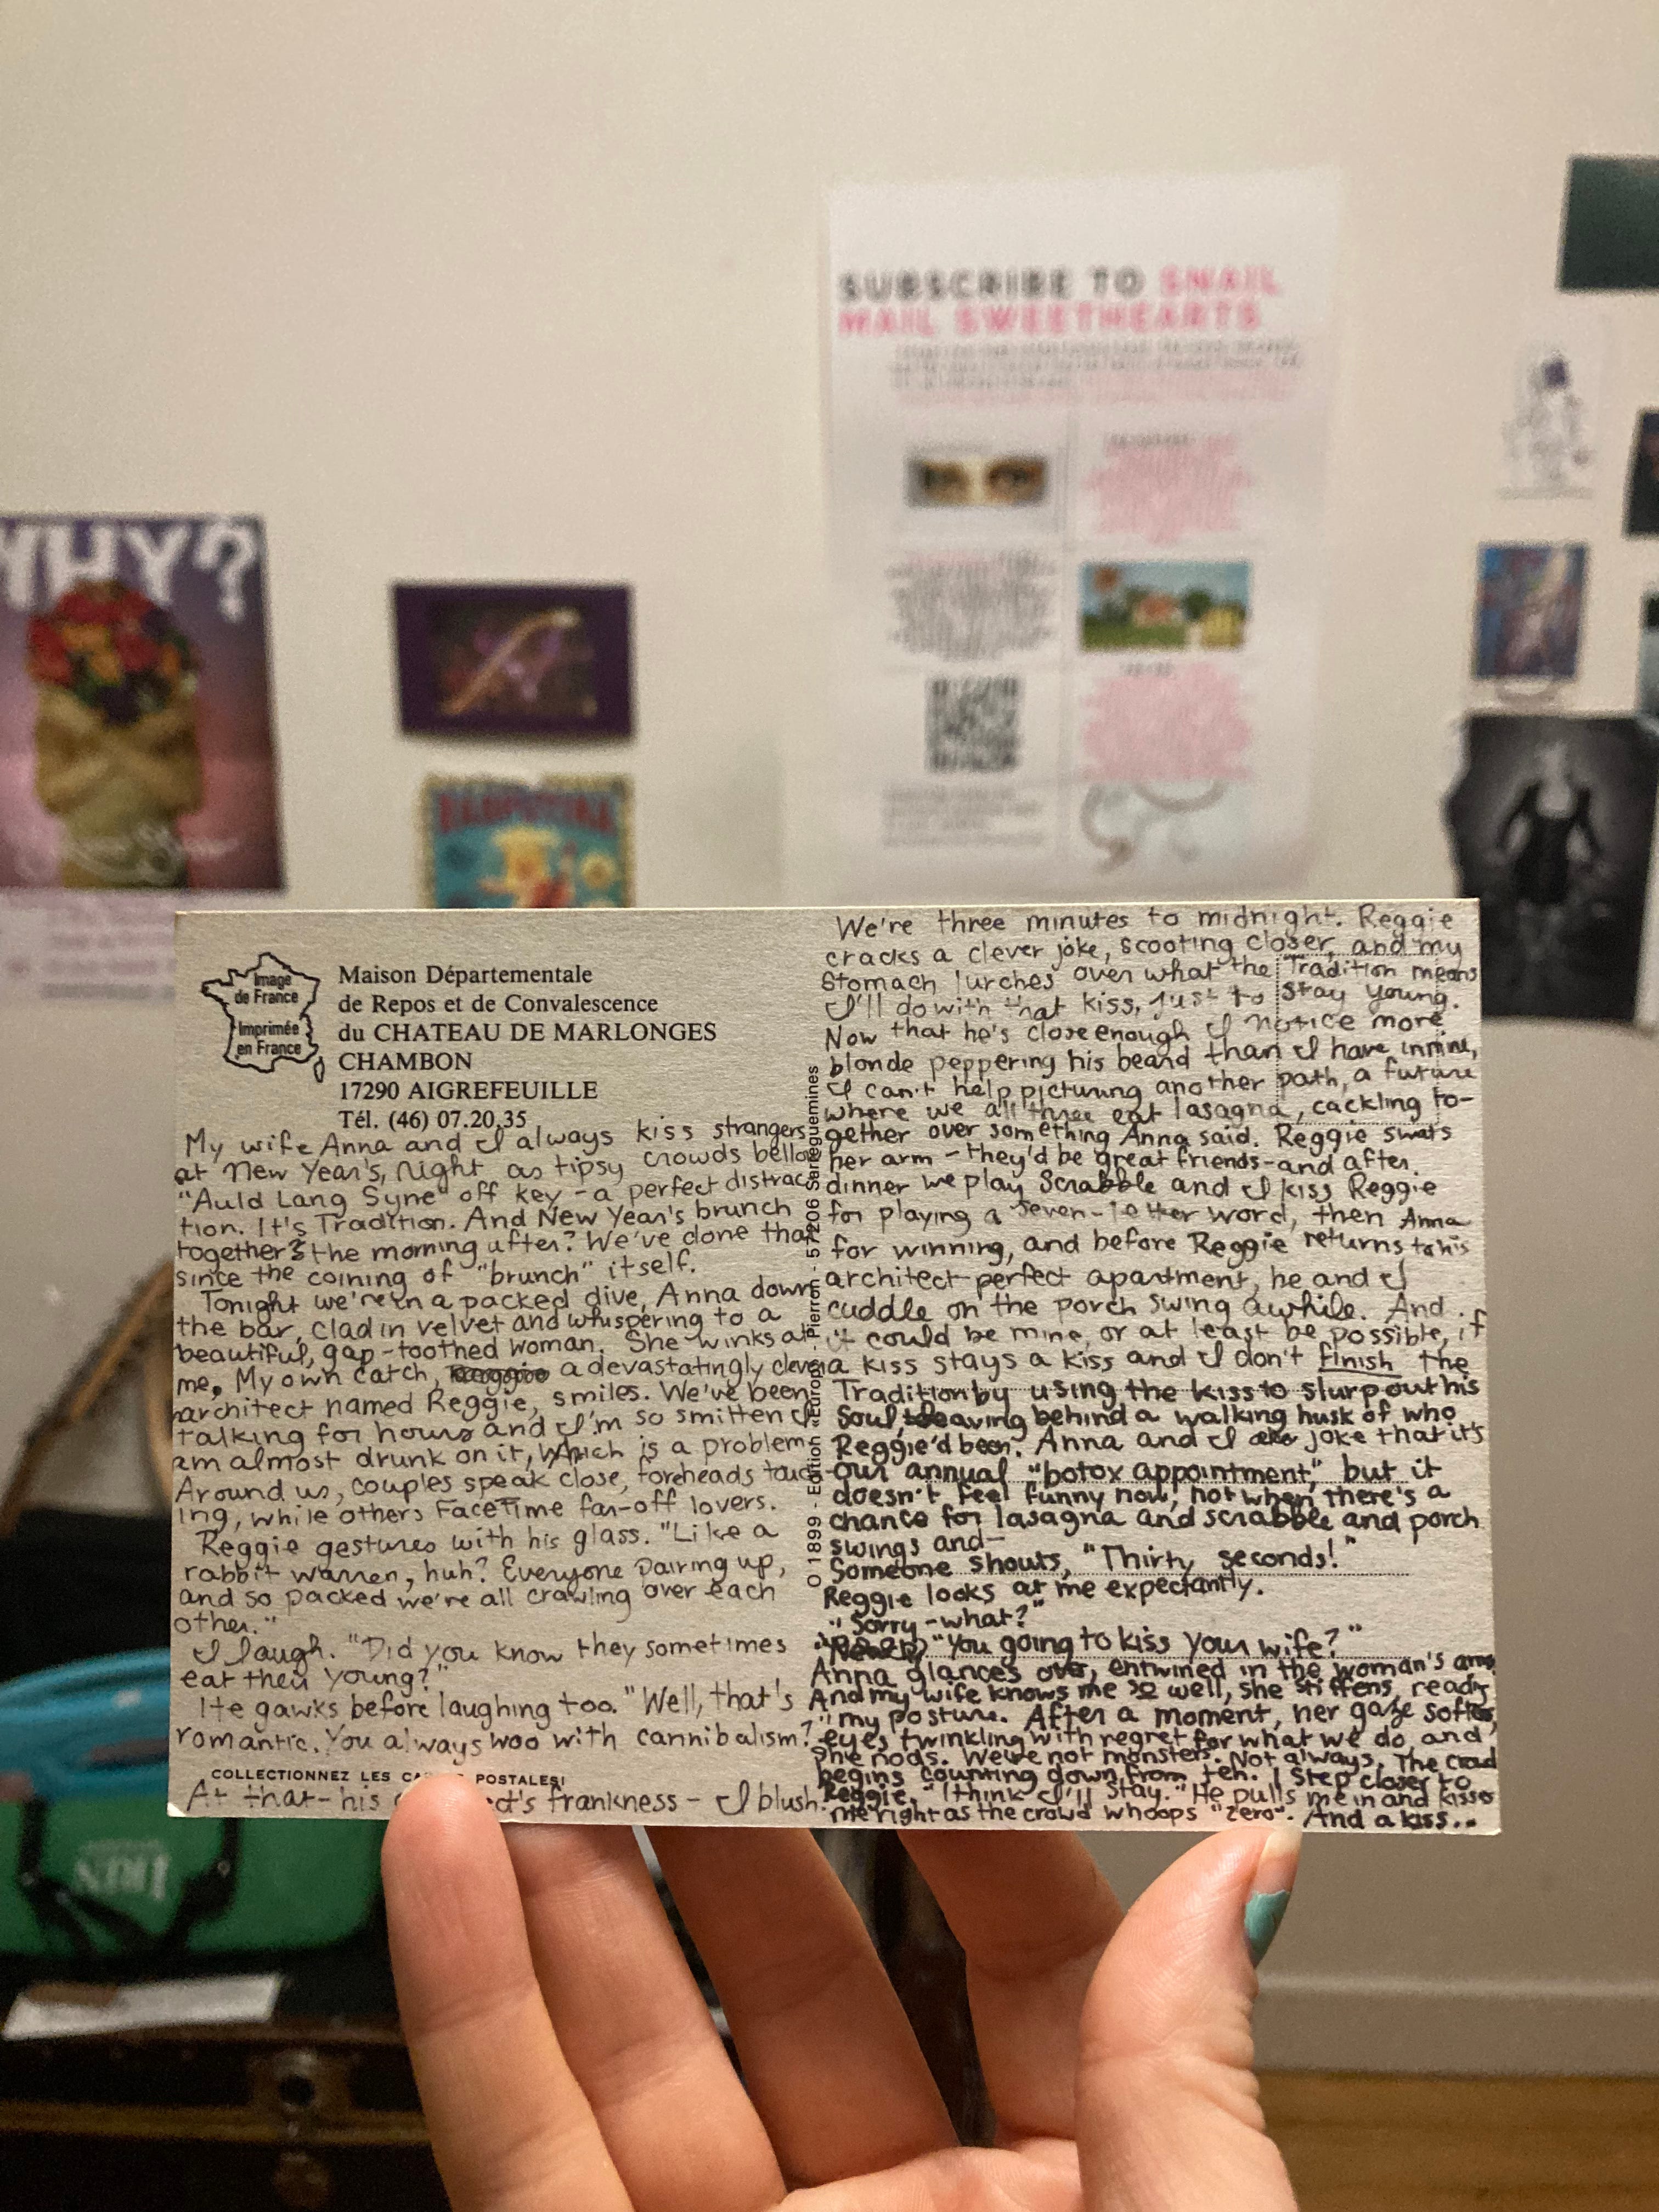 SUBSCRIBE TO SNAIL
MAIL SWEETHEARTS
WHY?
Image
de France
Imprimée
en France
Maison Départementale
de Repos et de Convalescence
du CHATEAU DE MARLONGES
CHAMBON
17290 AIGREFEUILLE
Tél. (46) 07.20.35
My wife Anna and I always kiss strangers
at New Year's, Night as tipsy crowds bellow
"Auld Lang Syne" off key - a perfect distrac-
tion. It's Tradition. And New Year's brunch
together the morning after? We've done that
since the coining of "brunch" itself.
Tonight we're in a packed dive, Anna down
the bar, clad in velvet and whispering to a
beautiful, gap-toothed woman. She winks at
me. My own catch, a devastatingly clever
architect named Reggie, smiles. We've been
talking for hours and I'm so smitten I
am almost drunk on it, which is a problem.
Around us, couples speak close, foreheads touch-
ing, while others FaceTime far-off lovers.
Reggie gestures with his glass. "Like a
rabbit warren, huh? Everyone pairing up,
and so packed we're all crawling over each
other."
I laugh. "Did you know they sometimes
eat their young?"
He gawks before laughing too. "Well, that's
romantic. You always woo with cannibalism?"
COLLECTIONNEZ LES POSTALES!
At that - his frankness - I blush.
O 1899 - Edition «Europ» - Pierron - 57206 Sarreguemines
We're three minutes to midnight. Reggie
cracks a clever joke, scooting closer, and my
stomach lurches over what the Tradition means
I'll do with that kiss, just to stay young.
Now that he's close enough I notice more
blonde peppering his beard than I have in mine,
I can't help picturing another path, a future
where we all three eat lasagna, cackling to-
gether over something Anna said. Reggie swats
her arm - they'd be great friends - and after
dinner we play Scrabble and I kiss Reggie
for playing a seven-letter word, then Anna
for winning, and before Reggie returns to his
architect-perfect apartment, he and I
cuddle on the porch swing awhile. And
it could be mine, or at least be possible, if
a kiss stays a kiss and I don't finish the
Tradition by using the kiss to slurp out his
soul leaving behind a walking husk of who
Reggie'd been. Anna and I joke that it's
our annual "botox appointment," but it
doesn't feel funny now, not when there's a
chance for lasagna and scrabble and porch
swings and-
Someone shouts, "Thirty seconds!"
Reggie looks at me expectantly.
"Sorry - what?"
"You going to kiss your wife?"
Anna glances over, entwined in the woman's arms
And my wife knows me so well, she stiffens, reading
my posture. After a moment, her gaze softens,
eyes twinkling with regret for what we do, and
she nods. We're not monsters. Not always. The crowd
begins counting down from ten. I step closer to
Reggie. "I think I'll stay." He pulls me in and kisses
me right as the crowd whoops "zero". And a kiss...